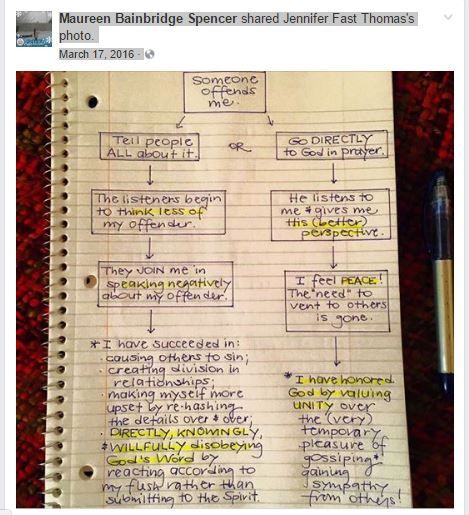 Maureen Bainbridge Spencer shared Jennifer Fast Thomas's
photo.
March 17, 2016 ·
Someone
offends
me.
Tell people
ALL about it.
OR
Go DIRECTLY
to God in prayer.
The listeners begin
to think less of
my offender.
He listens to
me & gives me
His (better)
perspective.
They JOIN me in
speaking negatively
about my offender.
I feel PEACE!
The "need" to
vent to others
is gone.
* I have succeeded in:
· causing others to sin;
· creating division in
relationships;
· making myself more
upset by re-hashing
the details over & over;
· DIRECTLY, KNOWINGLY,
& WILLFULLY disobeying
God's Word by
reacting according to
my flesh rather than
submitting to the Spirit.
* I have honored
God by valuing
UNITY over
the (very)
temporary
pleasure of
gossiping &
gaining
sympathy
from others!